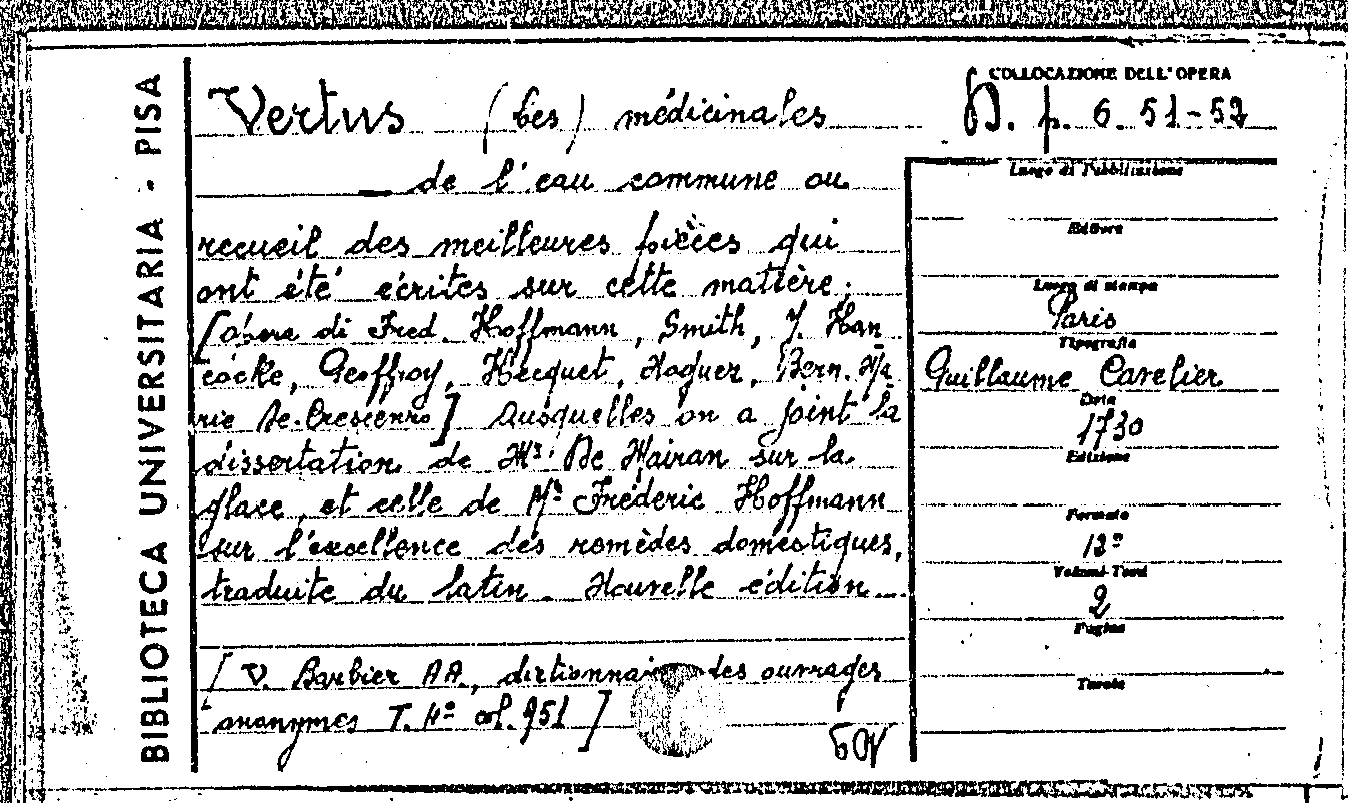 BIBLIOTECA UNIVERSITARIA - PISA
Vertus (les) médicinales
de l'eau commune ou
recueil des meilleures pièces qui
ont été écrites sur cette matière.
[opere di Fred. Hoffmann, Smith, J. Han
cocke, Geoffroy, Hecquet, Noguez, Bern. Ma
rie De-Crescenzo] Ausquelles on a joint la
dissertation de Mr. De Mairan sur la
glace, et celle de Mr Fréderic Hoffmann
sur l'excellence des remèdes domestiques,
traduite du latin. Nouvelle édition...
[V. Barbier AA., dictionnaire des ouvrages
anonymes T. col. 951]
COLLOCAZIONE DELL'OPERA
p. 6. 51-52
Luogo di Pubblicazione
Editore
Luogo di stampa
Paris
Tipografia
Guillaume Cavelier
Data
1730
Edizione
Formato
12°
Volumi-Tomi
2
Pagine
Tavole